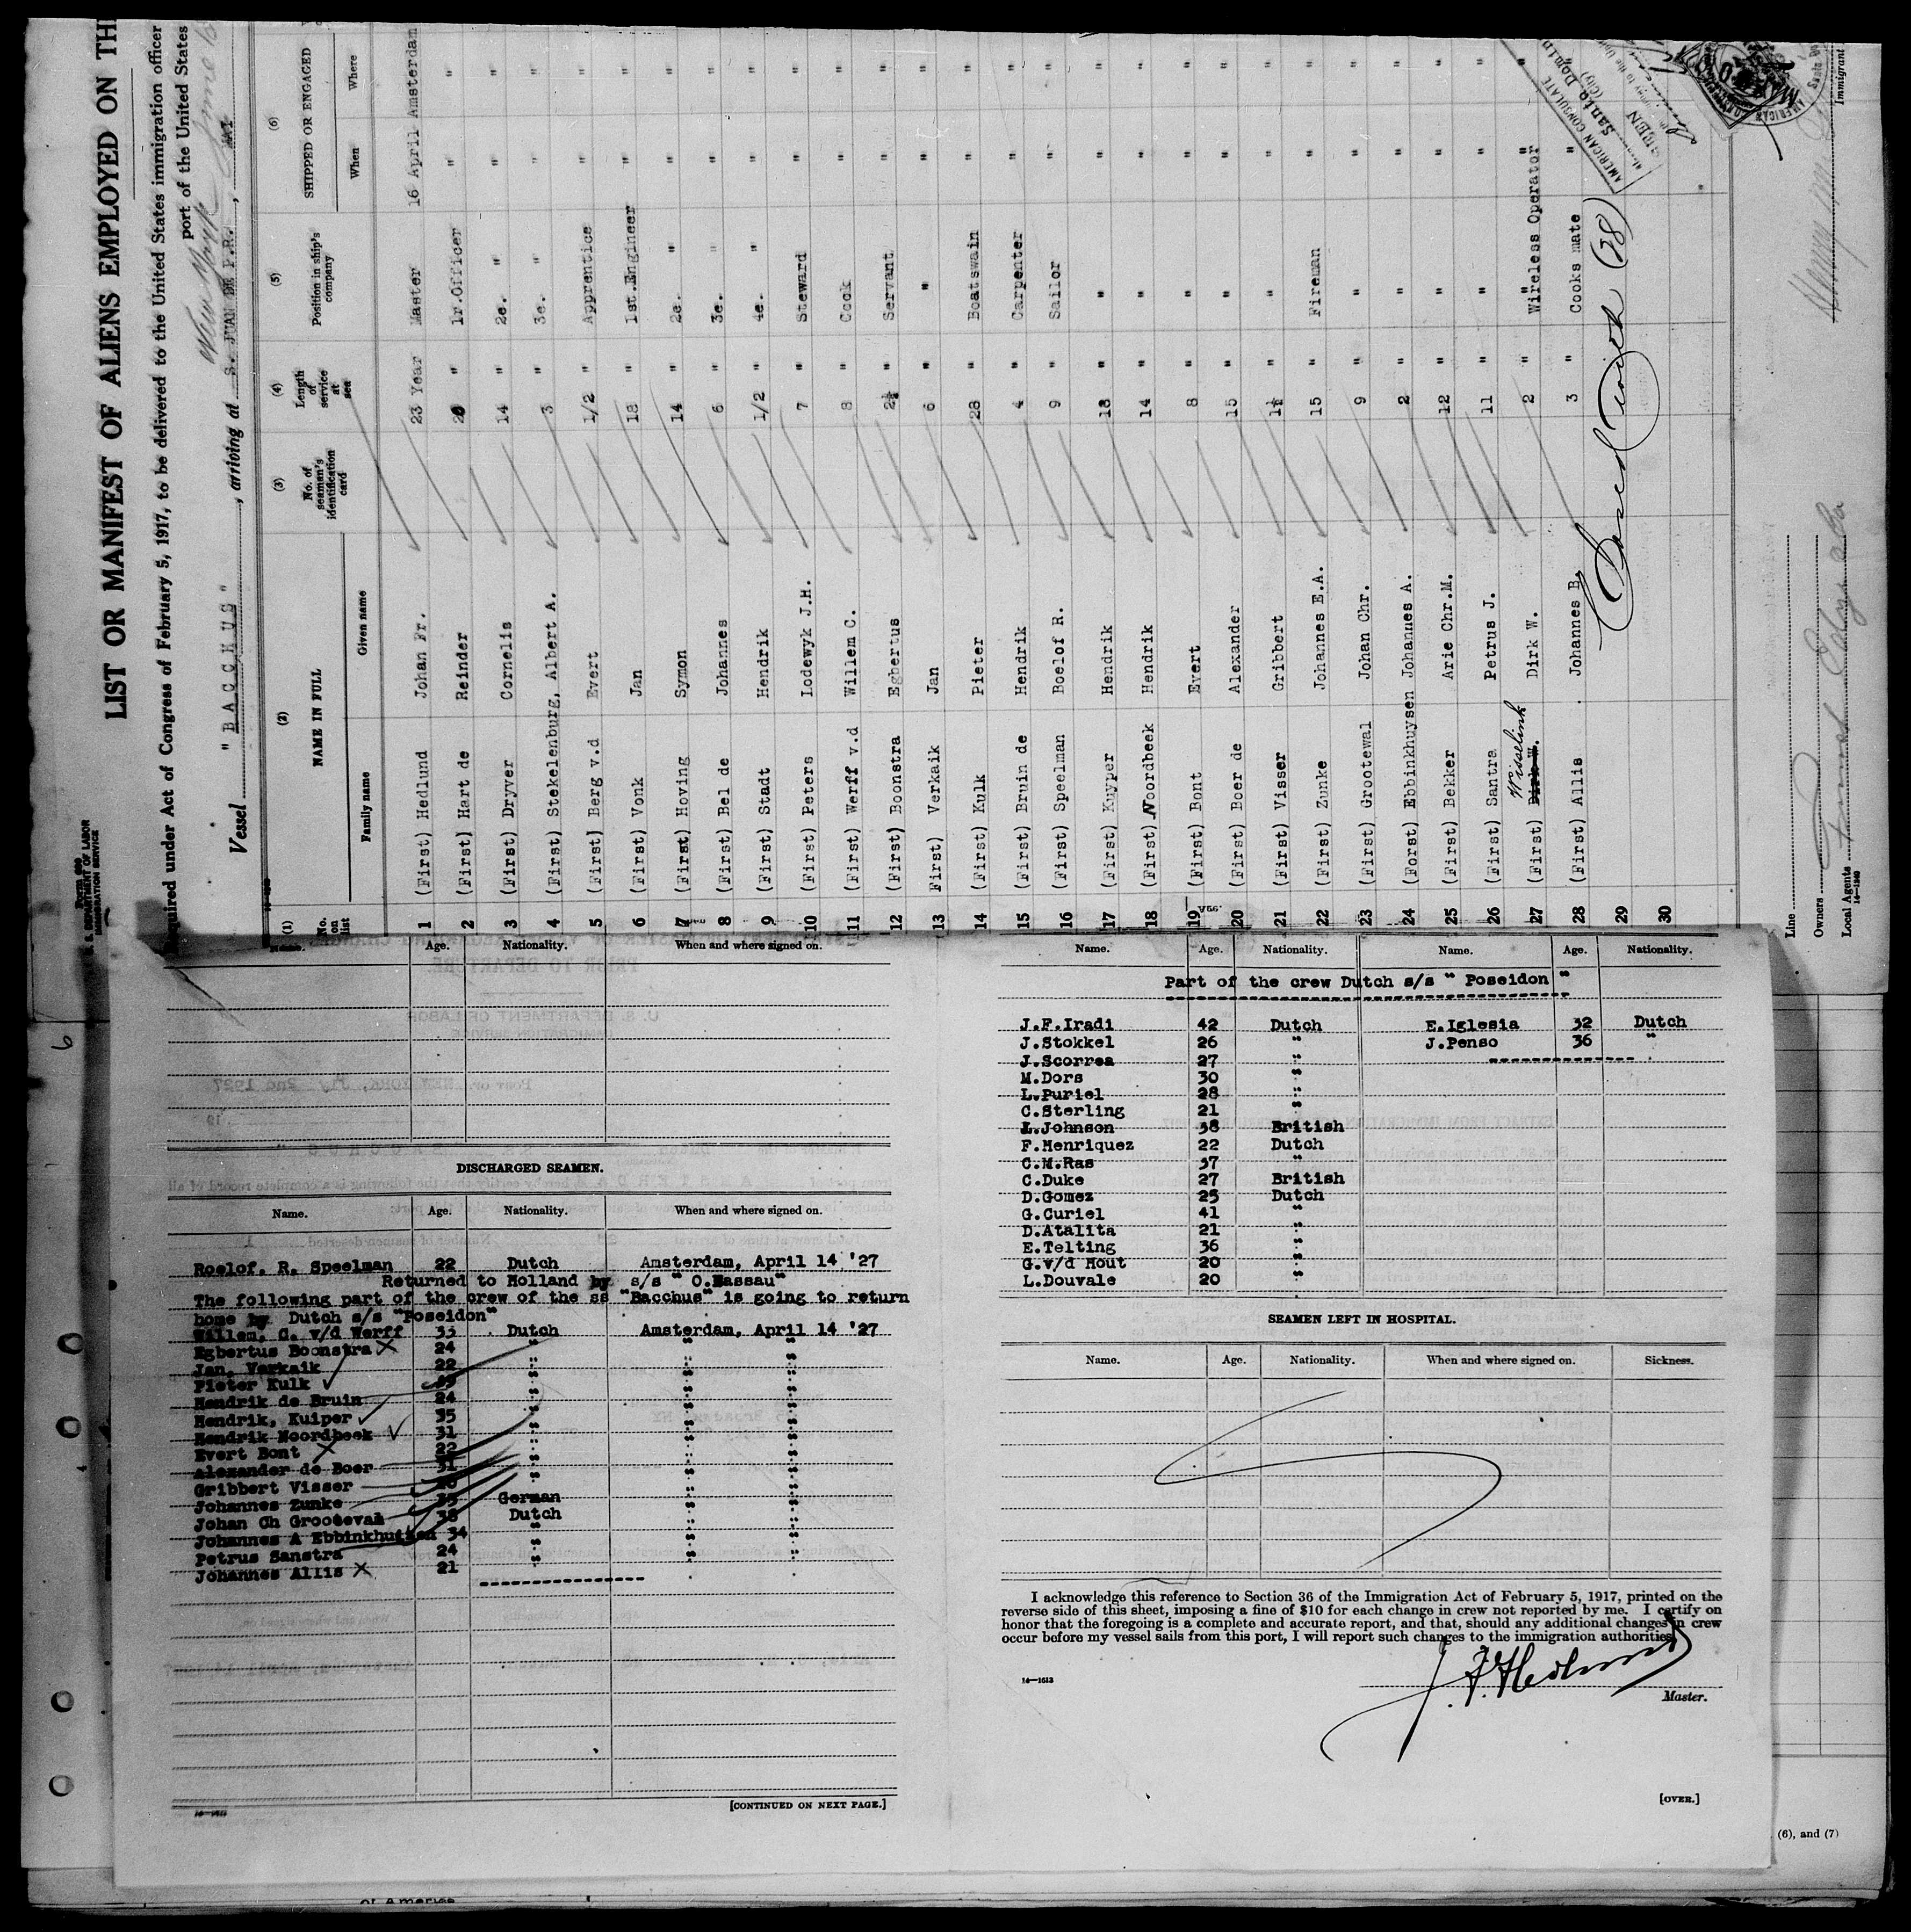 Form 680
U. S. DEPARTMENT OF LABOR
IMMIGRATION SERVICE
LIST OR MANIFEST OF ALIENS EMPLOYED ON TH
Required under Act of Congress of February 5, 1917, to be delivered to the United States immigration officer
port of the United States
New York
Vessel "BACCHUS", arriving at S. JUAN DE P.R.,
(1) (2) (3) (4) (5) (6)
No. on list NAME IN FULL No. of seaman's identification card Length of service at sea Position in ship's company SHIPPED OR ENGAGED
Family name Given name When Where
1 (First) Hedlund Johan Fr. 23 Year Master 16 April Amsterdam
2 (First) Hart de Reinder 20 " 1r.Officer " "
3 (First) Dryver Cornelis 14 " 2e. " " "
4 (First) Stekelenburg, Albert A. 3 " 3e. " " "
5 (First) Berg v.d Evert 1/2 " Apprentice " "
6 (First) Vonk Jan 18 " 1st.Engineer " "
7 (First) Hoving Symon 14 " 2e. " " "
8 (First) Bel de Johannes 6 " 3e. " " "
9 (First) Stadt Hendrik 1/2 " 4e. " " "
10 (First) Peters Lodewyk J.H. 7 " Steward " "
11 (First) Werff v.d Willem C. 8 " Cook " "
12 (First) Boonstra Egbertus 2½ " Servant " "
13 First) Verkaik Jan 6 " " " "
14 (First) Kulk Pieter 28 " Boatswain " "
15 (First) Bruin de Hendrik 4 " Carpenter " "
16 (First) Speelman Boelof R. 9 " Sailor " "
17 (First) Kuyper Hendrik 18 " " " "
18 (First) Noordbeek Hendrik 14 " " " "
19 (First) Bont Evert 8 " " " "
20 (First) Boer de Alexander 15 " " " "
21 (First) Visser Gribbert 1½ " " " "
22 (First) Zunke Johannes E.A. 15 " Fireman " "
23 (First) Grootewal Johan Chr. 9 " " " "
24 (Forst) Ebbinkhuysen Johannes A. 2 " " " "
25 (First) Bekker Arie Chr.M. 12 " " " "
26 (First) Santra Petrus J. 11 " " " "
Wisselink
27 (First) Dirk W. Dirk W. 2 " Wireless Operator " "
28 (First) Allis Johannes B. 3 " Cooks mate " "
29
30
(28)
AMERICAN CONSULATE
Santo Domin
(City)
SEEN
Line
Owners
Local Agents
14—1240
Immigrant
Name. Age. Nationality. When and where signed on.
DISCHARGED SEAMEN.
Name. Age. Nationality. When and where signed on.
Roelof. R. Speelman 22 Dutch Amsterdam, April 14 '27
Returned to Holland by s/s " O.Nassau"
The following part of the crew of the ss "Bacchus" is going to return
home by Dutch s/s "Poseidon"
Willem, C. v/d Werff 33 Dutch Amsterdam, April 14 '27
Egbertus Boonstra X 24 "
Jan. Verkaik 22
Pieter Kulk
Hendrik de Bruin 24
Hendrik, Kuiper 35
Hendrik Noordbeek 31
Evert Bont X 22
Alexander de Boer 31
Gribbert Visser
Johannes Zunke 35 German
Johan Ch Grooteval 38 Dutch
Johannes A Ebbinkhuisen 34
Petrus Sanstra 24
Johannes Allis X 21
[CONTINUED ON NEXT PAGE.]
Name. Age. Nationality. Name. Age. Nationality.
Part of the crew Dutch s/s " Poseidon "
J.F.Iradi 42 Dutch E.Iglesia 32 Dutch
J.Stokkel 26 " J.Penso 36 "
J.Scorrea 27 "
M.Dors 30 "
L.Puriel 28 "
C.Sterling 21 "
L.Johnson 38 British
F.Henriquez 22 Dutch
C.M.Ras 37 "
C.Duke 27 British
D.Gomez 25 Dutch
G.Curiel 41 "
D.Atalita 21 "
E.Telting 36 "
G.v/d Hout 20 "
L.Douvale 20 "
SEAMEN LEFT IN HOSPITAL.
Name. Age. Nationality. When and where signed on. Sickness.
I acknowledge this reference to Section 36 of the Immigration Act of February 5, 1917, printed on the
reverse side of this sheet, imposing a fine of $10 for each change in crew not reported by me. I certify on
honor that the foregoing is a complete and accurate report, and that, should any additional changes in crew
occur before my vessel sails from this port, I will report such changes to the immigration authorities.
J. F. Hedlund
14—1613
Master.
[OVER.]
(6), and (7)
of America
6